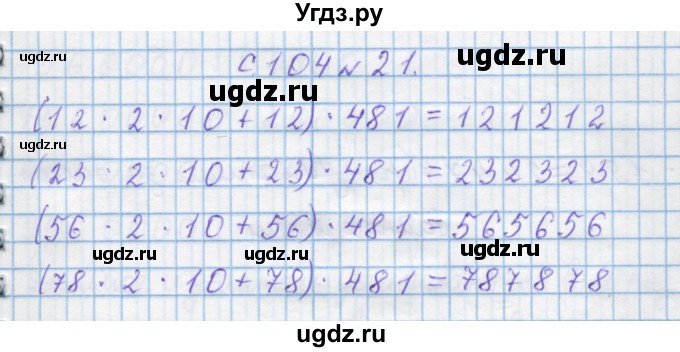 Угдз.ру
ugdz.ru ugdz.ru
с 104 № 21.
ugdz.ru
(12 · 2 · 10 + 12) · 481 = 121212
ugdz.ru
(23 · 2 · 10 + 23) · 481 = 232323
ugdz.ru
(56 · 2 · 10 + 56) · 481 = 565656
ugdz.ru ugdz.ru
(78 · 2 · 10 + 78) · 481 = 787878
ugdz.ru